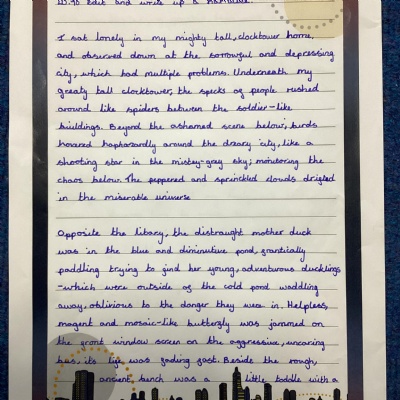 edit and write up a narrative.
I sat lonely in my mighty tall, clocktower home,
and observed down at the sorrowful and depressing
city, which had multiple problems. Underneath my
greaty tall clocktower, the specks of people rushed
around like spiders between the soldier-like
buieldings. Beyond the ashamed scene below, birds
hovered haphazardly around the dreary city, like a
shooting star in the mistey-gray sky; monitoring the
chaos below. The peppered and sprinckled clouds drizled
in the miserable universe
Opposite the libary, the distraught mother duck
was in the blue and diminutive pond, frantically
paddling trying to find her young, adventurous ducklings
-which were outside of the cold pond waddling
away, oblivious to the danger they were in. Helpless,
magent and mosaic-like butterfly was jammed on
the front window screen on the aggressive, uncaring
bus, its life was fading fast. Beside the rough,
ancient bench was a little toddle with a